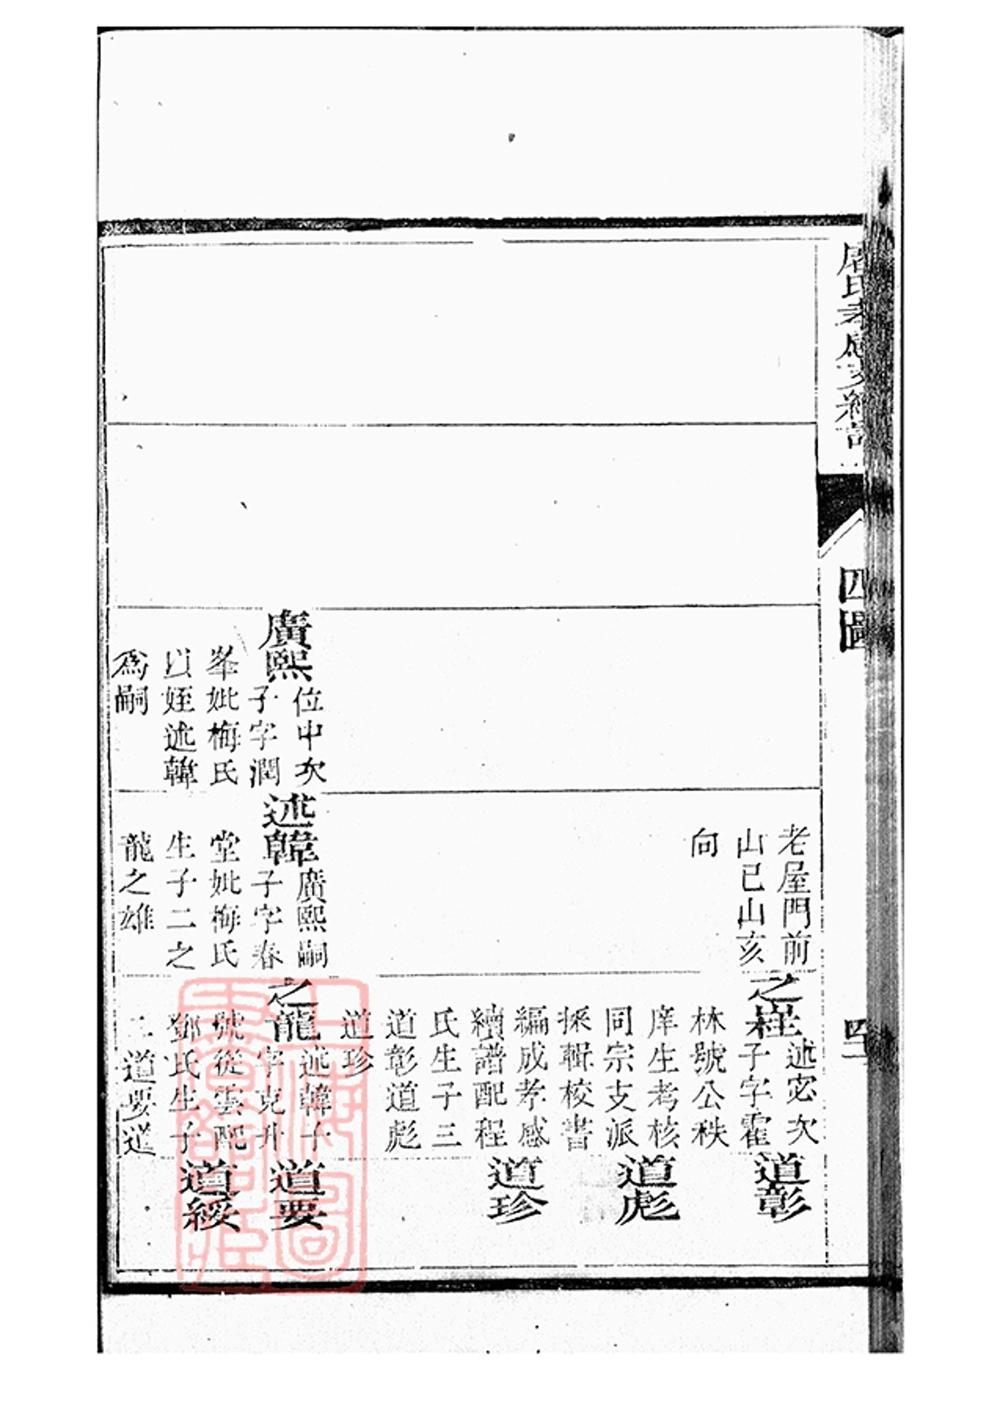 氏孝感支續譜
四圖
廣熙
位中次
子字潤
峯妣梅氏
以姪述韓
爲嗣
老屋門前
山巳山亥
向
述韓
廣熙嗣
子字春
堂妣梅氏
生子二之
龍之雄
之崔
述宓次
子字霍
林號公秩
庠生考核
同宗支派
採輯校書
編成孝感
續譜配程
氏生子三
道彰道彪
道珍
之龍
述韓子
字克升
號從雲配
鄧氏生子
二道要道
道彰
道彪
道珍
道要
道綏
上海圖書館藏